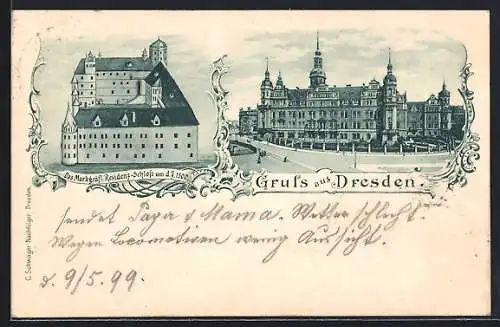 Das Markgräfl. Residenz-Schloß um d. J. 1500
Gruſs aus Dresden.
sendet Papa & Mama. Wetter schlecht.
Wegen Locomotiven wenig Aussicht.
d. 9/5.99.
C. Schwager Nachfolger Dresden.